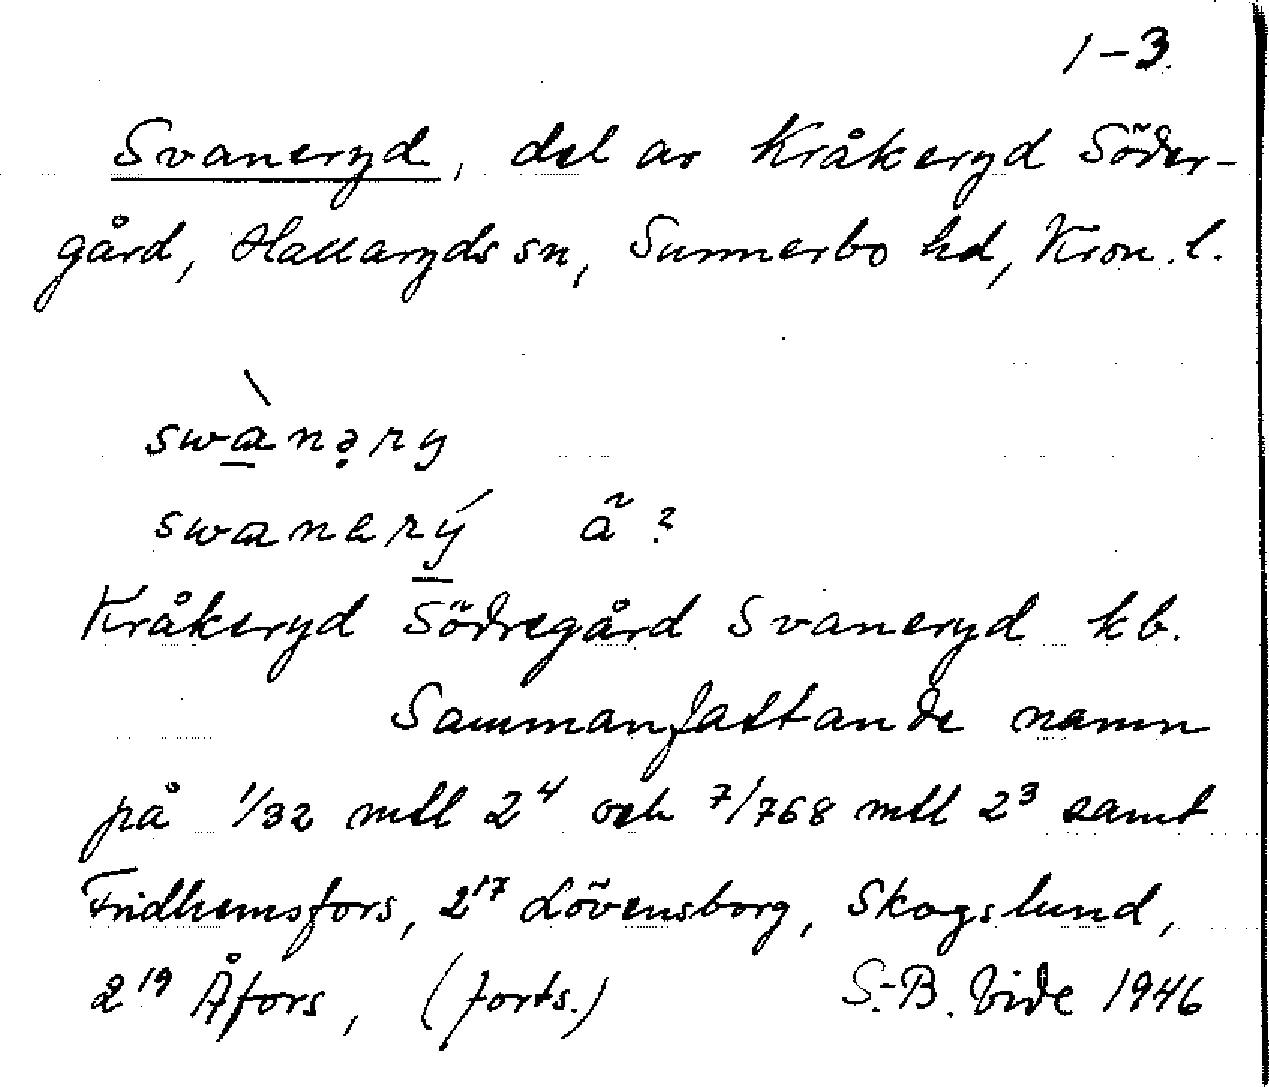 1-3.
Svaneryd, del av Kråkeryd Söder-
gård, Hallaryds sn, Sunnerbo hd, Kron. l.
swànə̣ry
swanerý ã ?
Kråkeryd Södregård Svaneryd kb.
Sammanfattande namn
på 1/32 mtl 2⁴ och 7/768 mtl 2³ samt
Fridhemsfors, 2¹⁷ Lövensborg, Skogslund,
2¹⁹ Åfors, (forts.) S.-B. Vide 1946